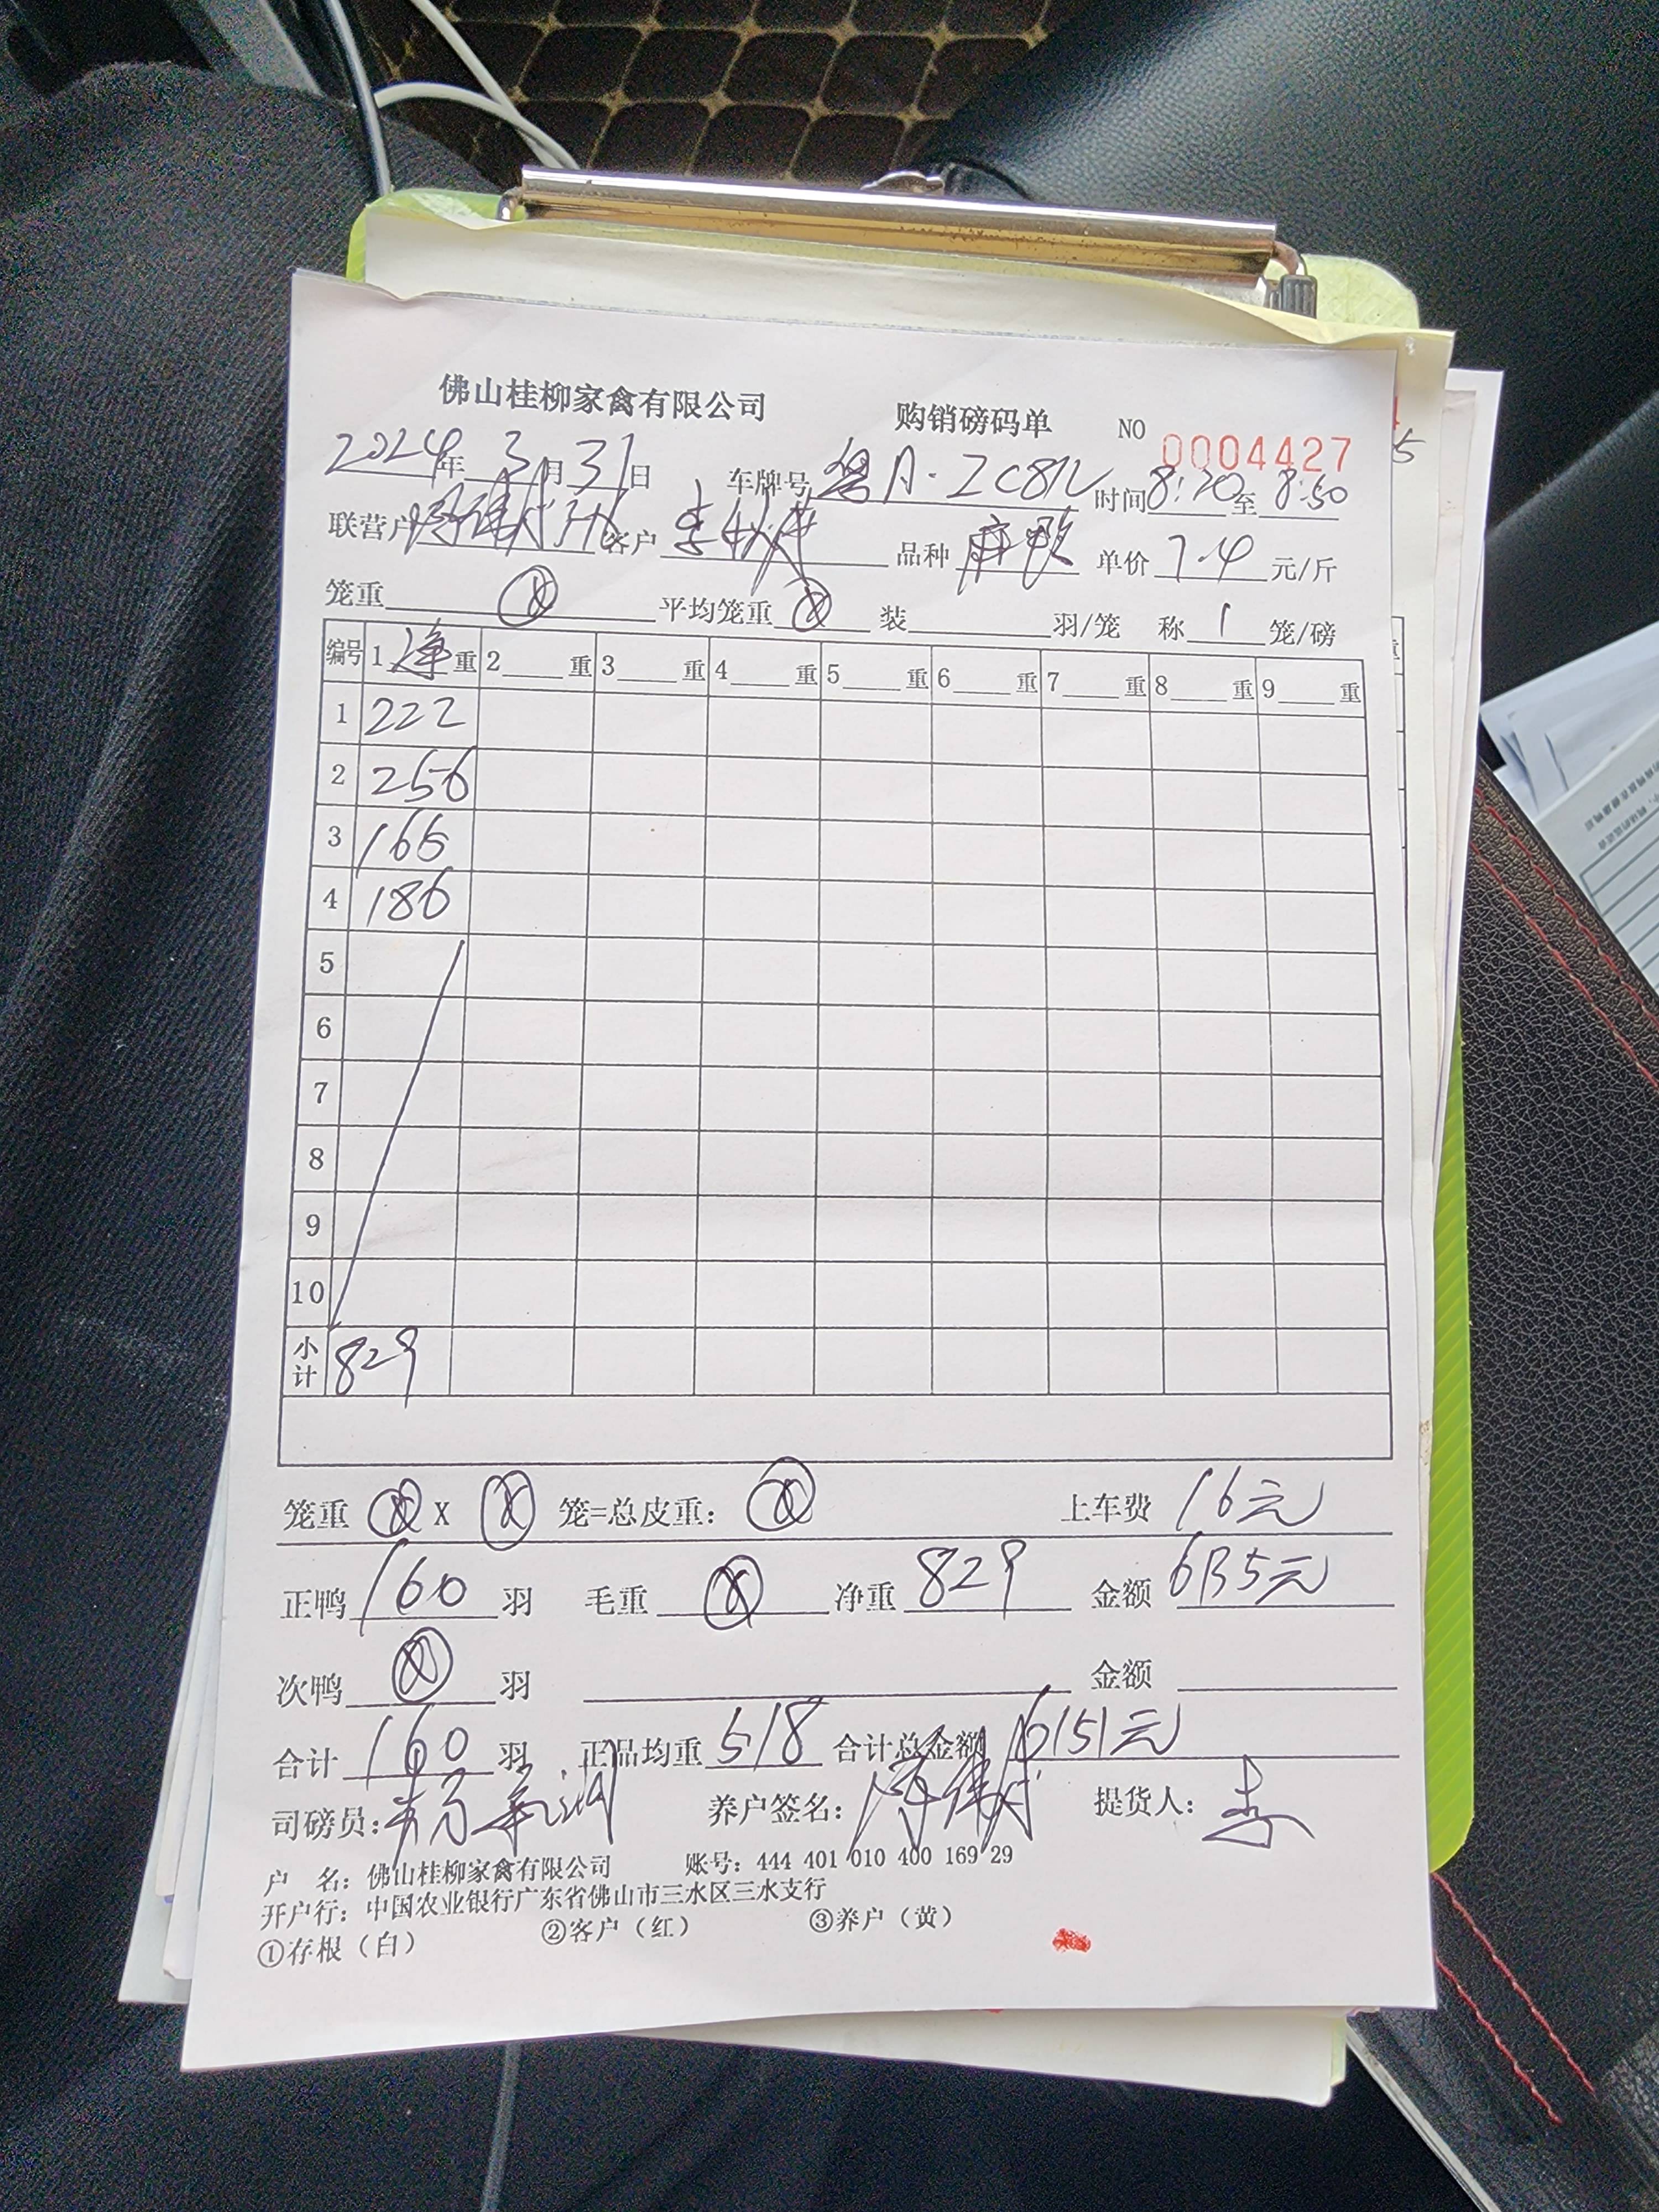 佛山桂柳家禽有限公司 购销磅码单 NO 0004427
2024年 3月31日 车牌号 粤A·ZC8 时间8:20至8:50
联营户 客户 李 品种 麻鸭 单价 7.4 元/斤
笼重 ⓧ 平均笼重 ⓧ 装 羽/笼 称 1 笼/磅
编号 1 净 重 2 重 3 重 4 重 5 重 6 重 7 重 8 重 9 重
1 222
2 256
3 165
4 186
5
6
7
8
9
10
小计 829
笼重 ⓧ X ⓧ 笼=总皮重: ⓧ 上车费 16元
正鸭 160 羽 毛重 ⓧ 净重 829 金额 6135元
次鸭 ⓧ 羽 金额
合计 160 羽 正品均重 518 合计总金额 6151元
司磅员: 养户签名: 提货人: 李
户 名: 佛山桂柳家禽有限公司 账号: 444 401 010 400 169 29
开户行: 中国农业银行广东省佛山市三水区三水支行
①存根(白) ②客户(红) ③养户(黄)